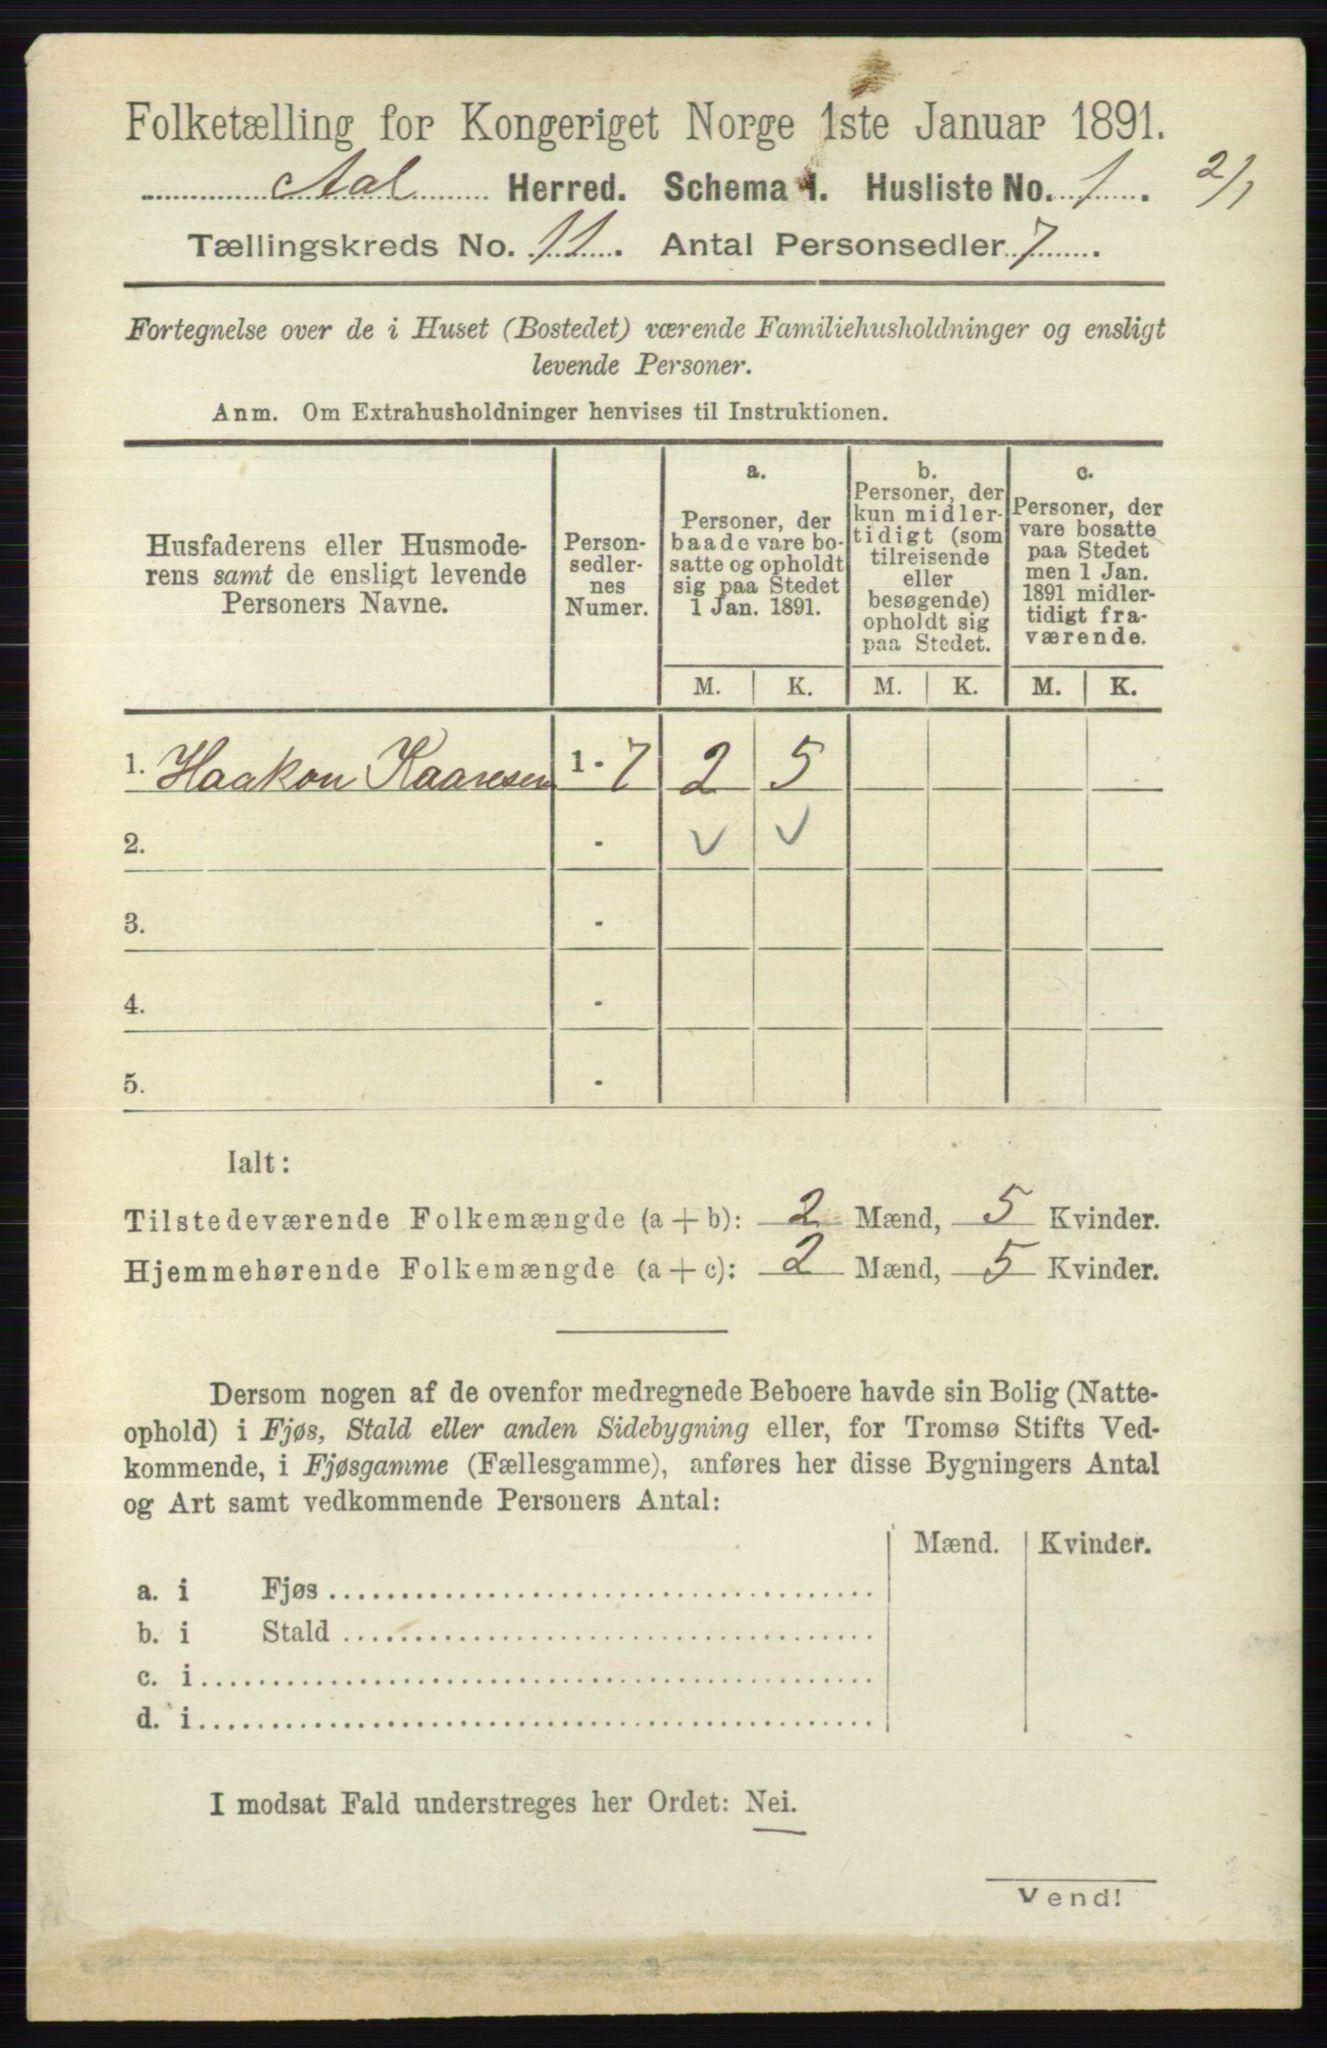 Folketælling for Kongeriget Norge 1ste Januar 1891.
Aal Herred. Schema 1. Husliste No. 1. 2/1
Tællingskreds No. 11. Antal Personsedler 7.
Fortegnelse over de i Huset (Bostedet) værende Familiehusholdninger og ensligt
levende Personer.
Anm. Om Extrahusholdninger henvises til Instruktionen.
Husfaderens eller Husmode-
rens samt de ensligt levende
Personers Navne.
Person-
sedler-
nes
Numer.
a.
Personer, der
baade vare bo-
satte og opholdt
sig paa Stedet
1 Jan. 1891.
b.
Personer, der
kun midler-
tidigt (som
tilreisende
eller
besøgende)
opholdt sig
paa Stedet.
c.
Personer, der
vare bosatte
paa Stedet
men 1 Jan.
1891 midler-
tidigt fra-
værende.
M. K. M. K. M. K.
1. Haakon Kaaresen 1 - 7 2 5
2. - ✓ ✓
3. -
4. -
5. -
Ialt:
Tilstedeværende Folkemængde (a + b): 2 Mænd, 5 Kvinder.
Hjemmehørende Folkemængde (a + c): 2 Mænd, 5 Kvinder.
Dersom nogen af de ovenfor medregnede Beboere havde sin Bolig (Natte-
ophold) i Fjøs, Stald eller anden Sidebygning eller, for Tromsø Stifts Ved-
kommende, i Fjøsgamme (Fællesgamme), anføres her disse Bygningers Antal
og Art samt vedkommende Personers Antal:
Mænd. Kvinder.
a. i Fjøs
b. i Stald
c. i
d. i
I modsat Fald understreges her Ordet: Nei.
Vend!